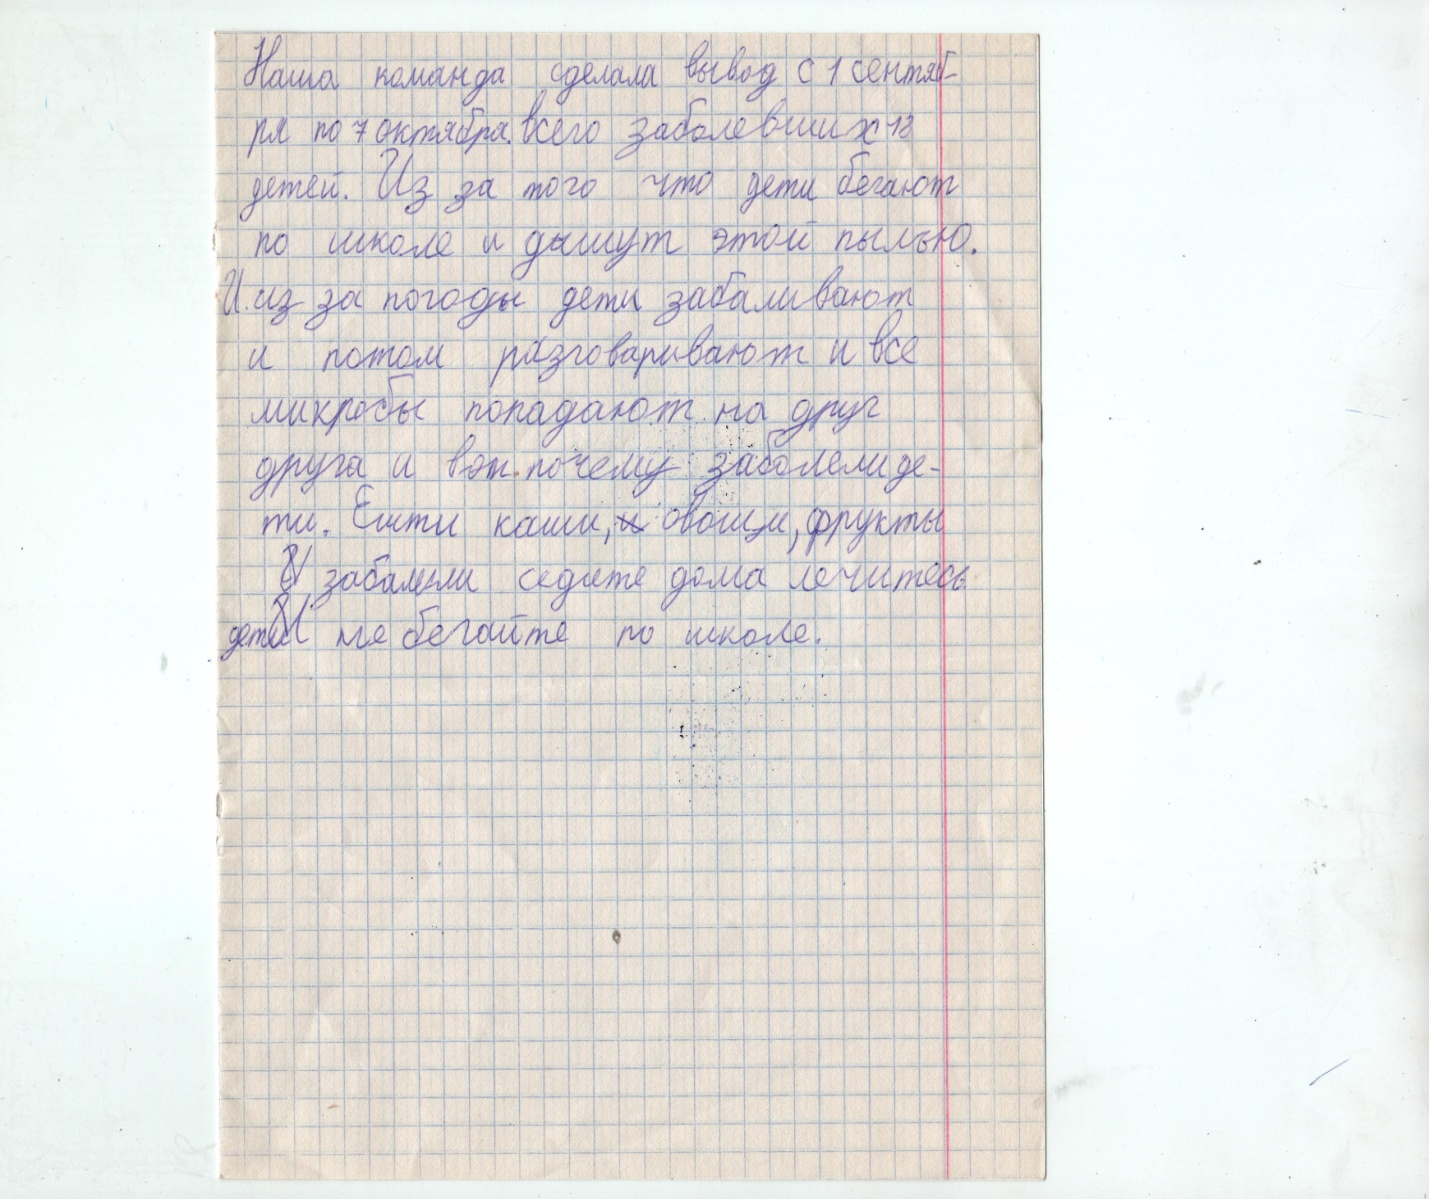 Наша команда сделала вывод с 1 сентяб-
ря по 7 октября. всего заболевших 18
детей. Из за того что дети бегают
по школе и дышут этой пылью.
И из за погоды дети забаливают
и потом разговаривают и все
микробы попадают на друг
друга и вот почему заболели де-
ти. Ешти каши, овощи, фрукты
И забалели седите дома лечитесь
дети И не бегайте по школе.